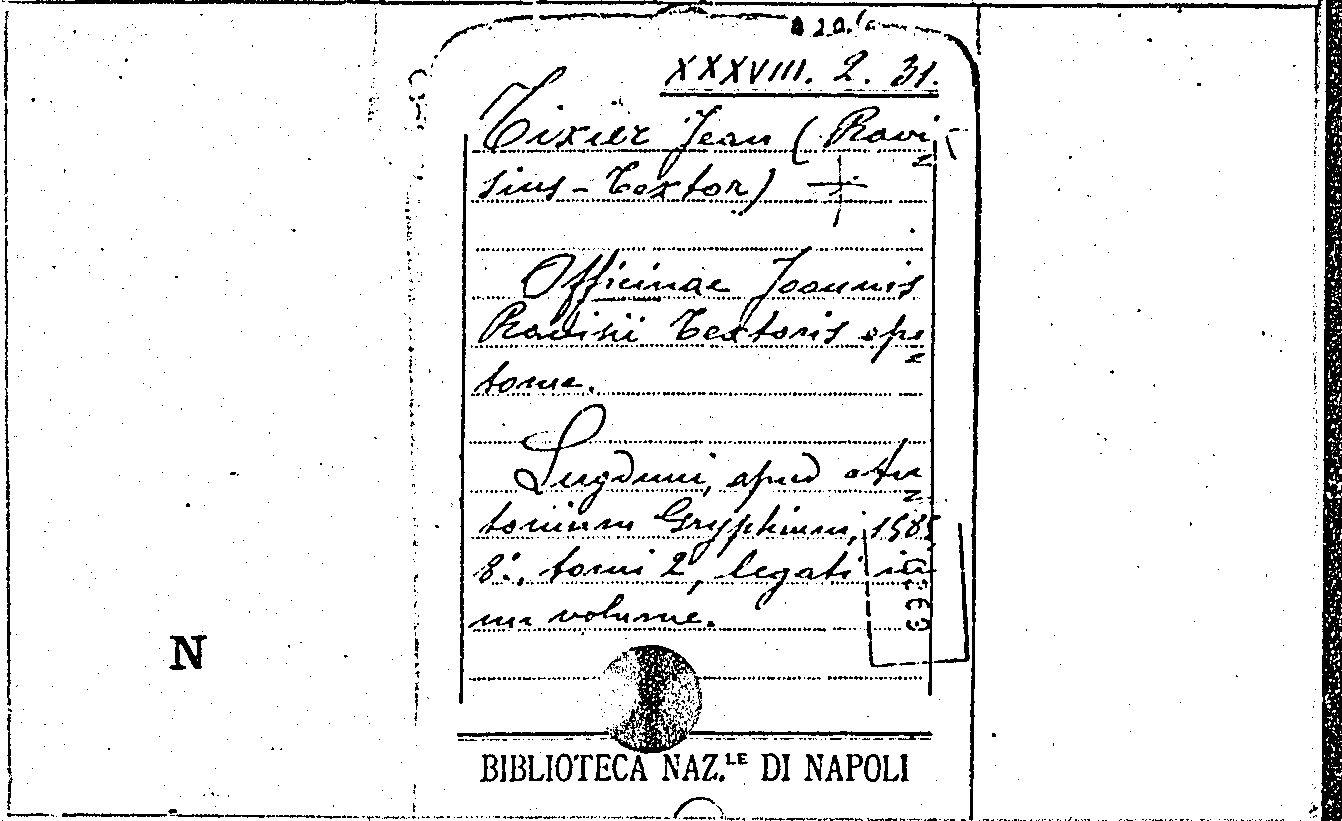 XXXVIII. 2. 31.
Tixier Jean (Ravi=
sius-Textor)
Officinae Joannis
Ravisii Textoris epi=
tome.
Lugduni, apud An=
tonium Gryphium, 1585
8°., tomi 2, legati in
un volume.
N
BIBLIOTECA NAZ.LE DI NAPOLI